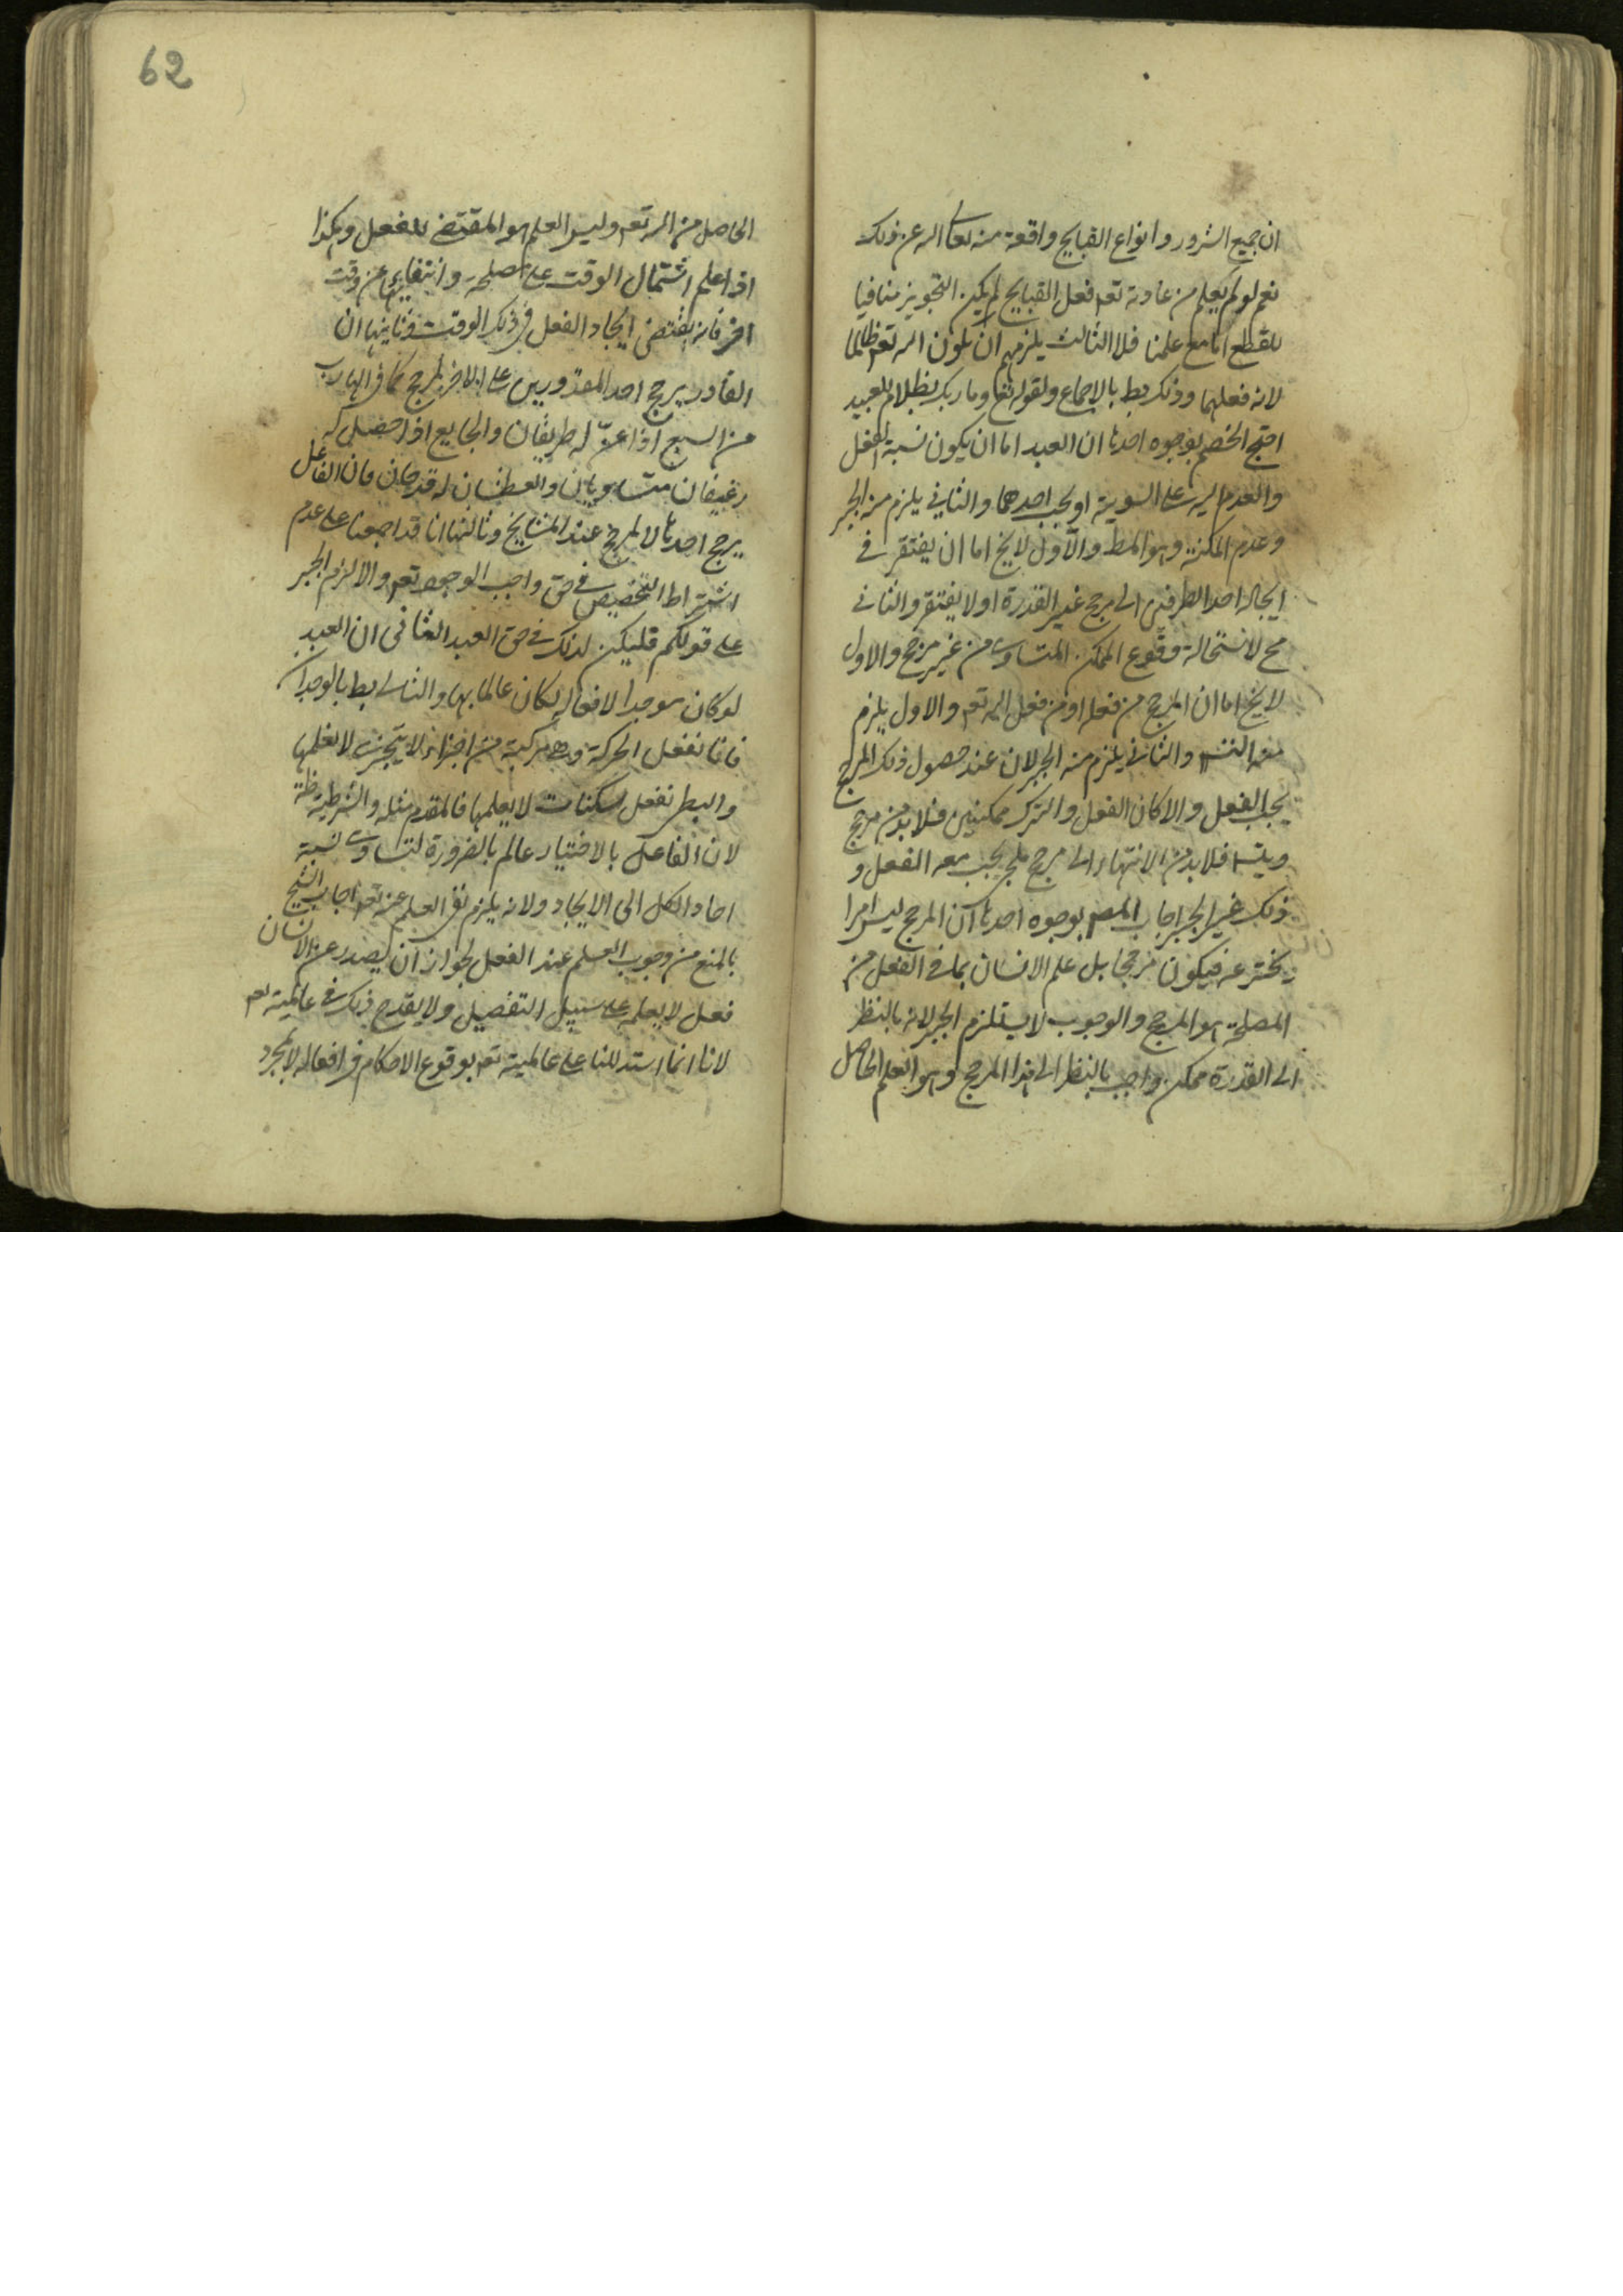 ان جميع الشرور وانواع القبايح واقعة منه تعالى الله عن ذلك
نعم لو لم يعلم من عادته تعم فعل القبايح لم يكن التجويز منافيا
للقطع اما مع علمنا فلا الثالث يلزمهم ان يكون الله تعم ظالما
لانه فعلهما وذلك بط بالاجماع ولقوله تعا وما ربك بظلام للعبيد
احتج الخصم بوجوه احدها ان العبد اما ان يكون نسبة الفعل
والعدم اليه على السوية او يجب احدهما والثاني يلزم منه الجبر
وعدم المكنة وهو المط والاول لا يخ اما ان يفتقر في
ايجاد احد الطرفين الى مرجح غير القدرة او لا يفتقر والثاني
مح لاستحالة وقوع الممكن المتساوي من غير مرجح والاول
لا يخ اما ان المرجح من فعله او من فعل الله تعم والاول يلزم
منه التس والثاني يلزم منه الجبر لان عند حصول ذلك المرجح
يجب الفعل والا كان الفعل والترك ممكنين فلا بد من مرجح
ويتس فلا بد من الانتهاء الى مرجح يجب معه الفعل و
ذلك عين الجبر اجاب المصـ بوجوه احدها ان المرجح ليس امرا
يخترعه فيكون مرجحا بل علم الانسان بما في الفعل من
المصلحة هو المرجح والوجوب لا يستلزم الجبر لانه بالنظر
الى القدرة ممكن واجب بالنظر الى هذا المرجح وهو العلم الحاصل
62
الحاصل من الله تعم وليس العلم هو المقتضي للفعل وهكذا
اذا علم اشتمال الوقت على مصلحة وانتفاءها عن وقت
اخر فانه يقتضي ايجاد الفعل في ذلك الوقت وثانيها ان
القادر يرجح احد المقدورين على الاخر لا لمرجح كما في الهارب
من السبع اذا عنّ له طريقان والجايع اذا حضل له
رغيفان متساويان والعطشان له قدحان فان الفاعل
يرجح احدها لا لمرجح عند المشايخ وثالثها انا قد اجمعنا على عدم
اشتراط التخصيص في حق واجب الوجود تعم والا لزم الجبر
على قولكم فليكن كذلك في حق العبد الثاني ان العبد
لو كان موجدا لافعاله لكان عالما بها والتالي بط بالوجدان
فانا نفعل الحركة وهي مركبة من اجزاء لا يتجزى لا نعلمها
والبطى نفعل سكنات لا يعلمها فالمقدم مثله والشرطية ظة
لان الفاعل بالاختيار عالم بالضرورة لتساوى نسبة
احاد الكل الى الايجاد ولانه يلزم نفي العلم عنه تعم اجاب الشيخ
بالمنع من وجوب العلم عند الفعل لجواز ان يصدر عن الانسان
فعل لا يعلمه على سبيل التفصيل ولا يقدح ذلك في عالميته تعم
لانا انما استدللنا على عالميته تعم بوقوع الاحكام في افعاله لا بمجرد